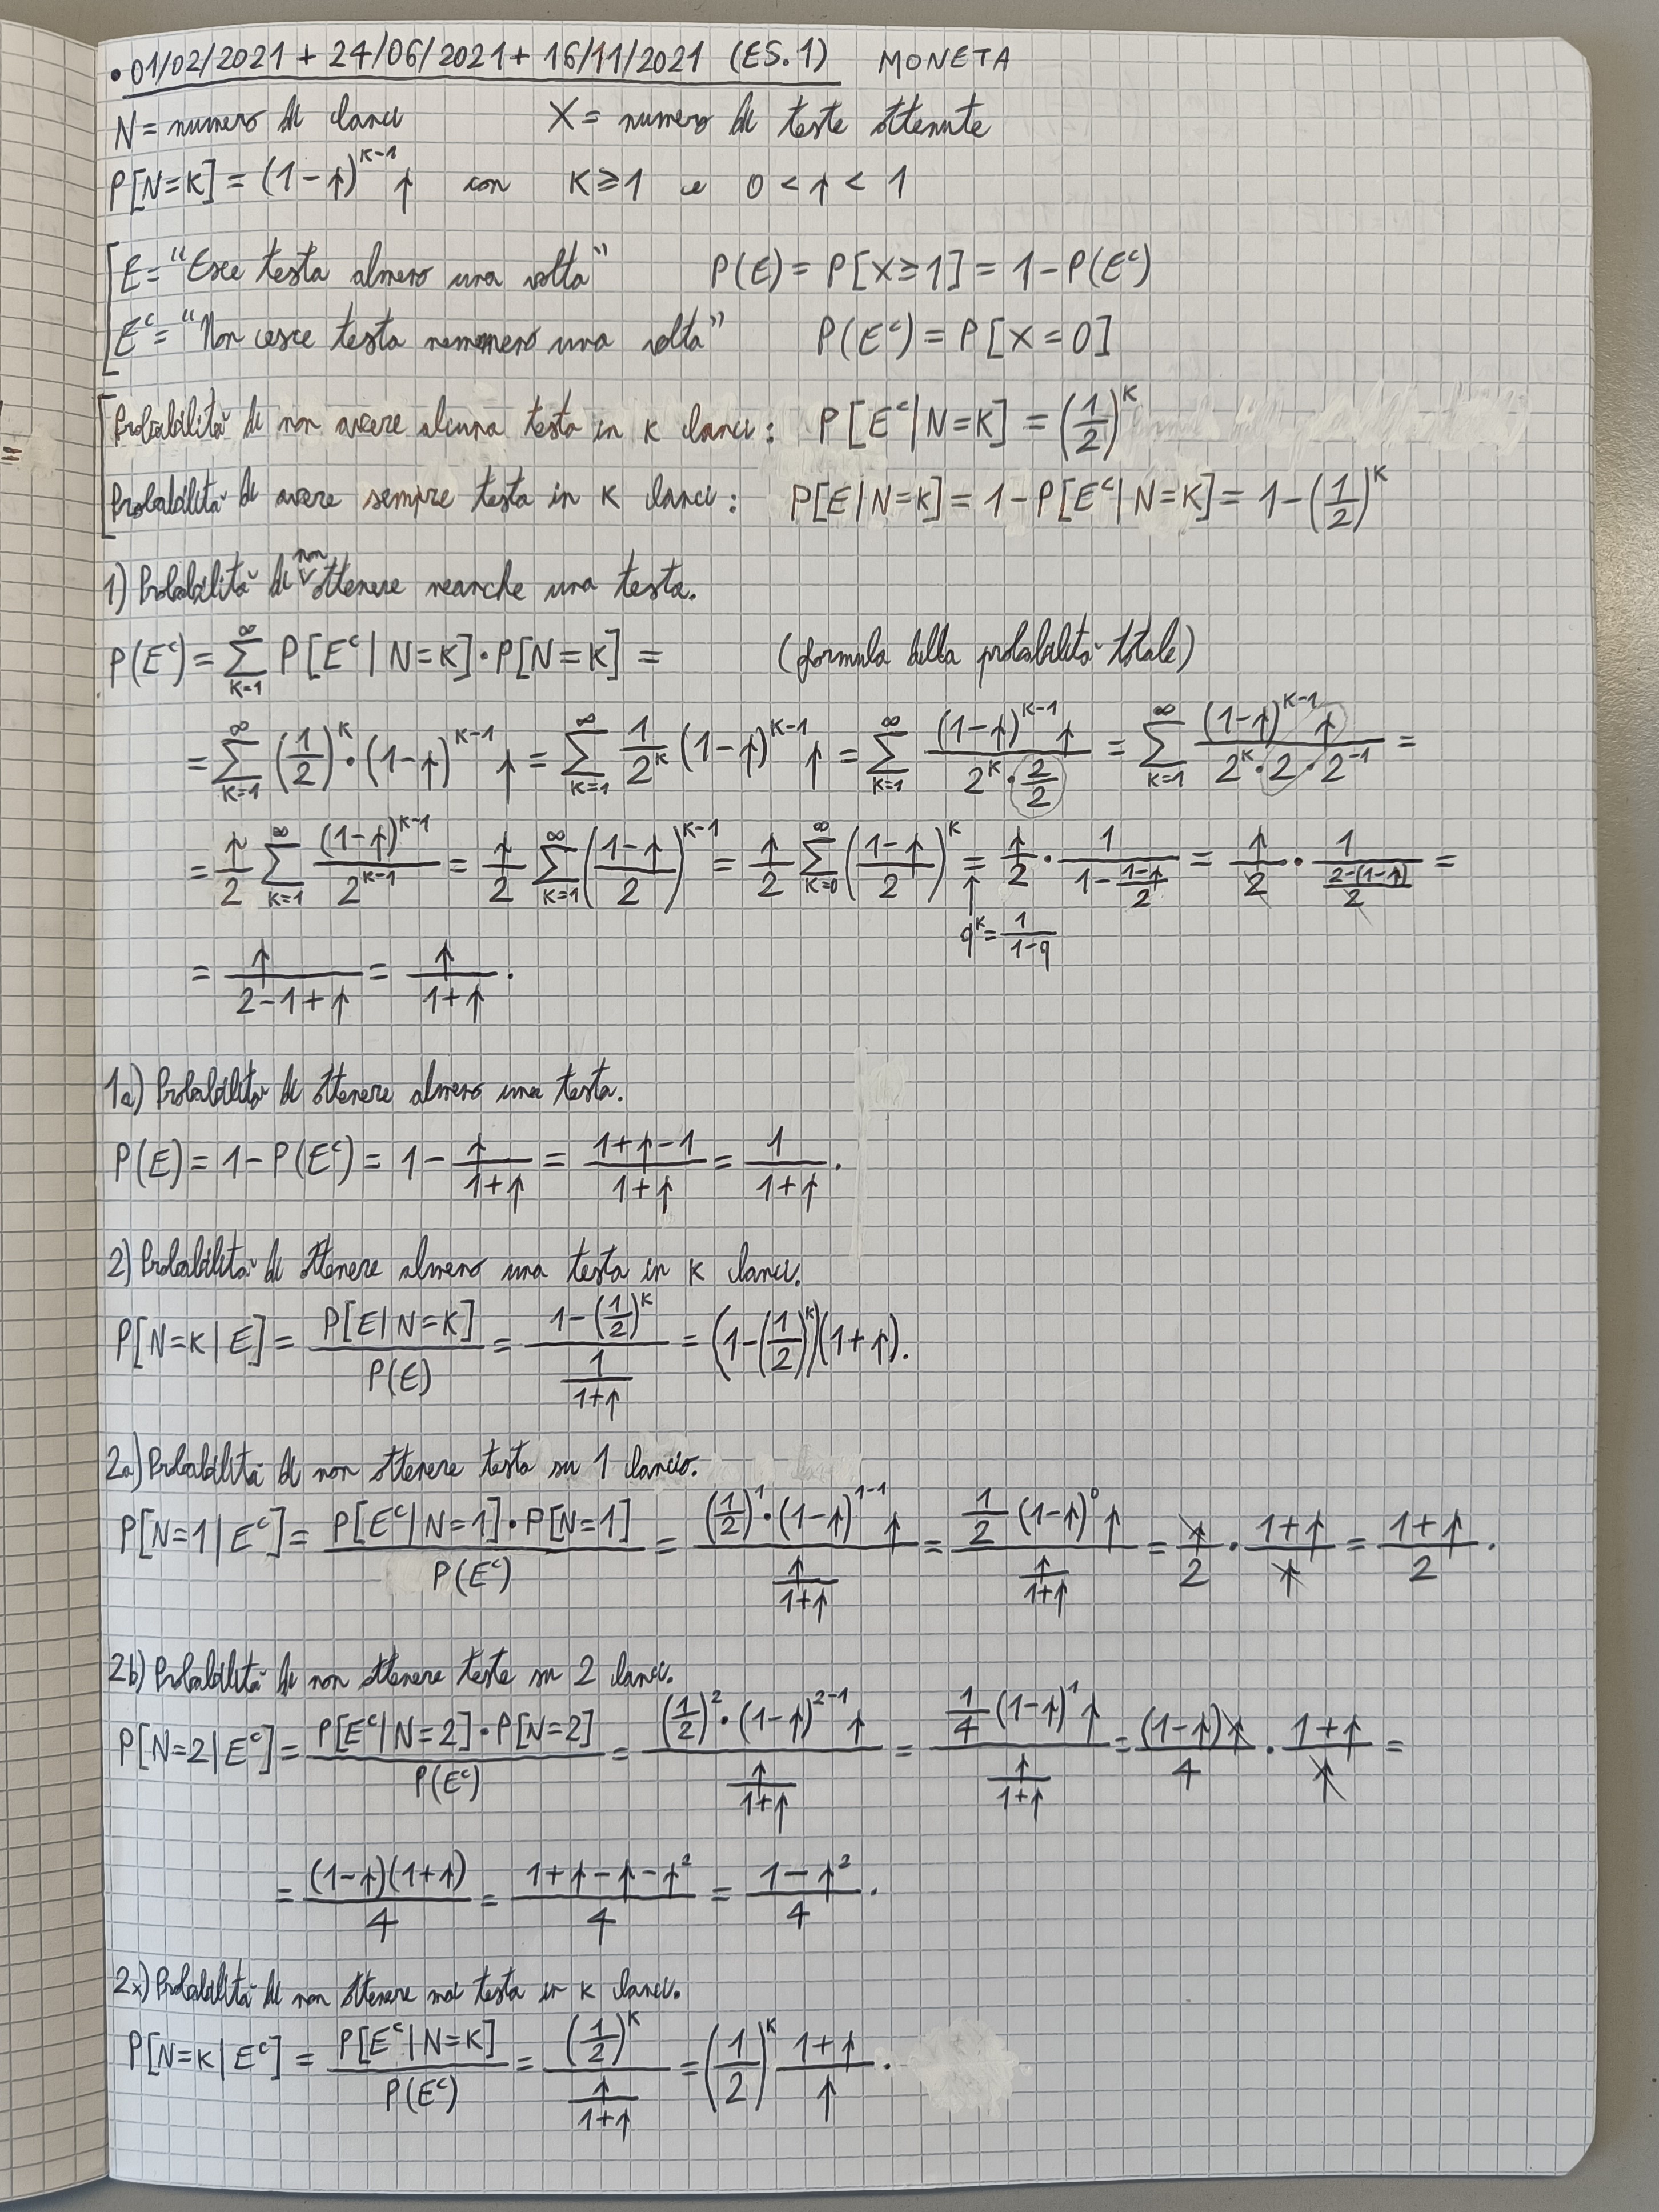 • 01/02/2021 + 24/06/2021 + 16/11/2021 (ES.1) MONETA
N = numero di lanci X = numero di teste ottenute
P[N=K] = (1-p)^{K-1} p con K ≥ 1 e 0 < p < 1
E = "Esce testa almeno una volta" P(E) = P[X≥1] = 1 - P(E^c)
E^c = "Non esce testa nemmeno una volta" P(E^c) = P[X=0]
Probabilità di non avere alcuna testa in K lanci: P[E^c | N=K] = (1/2)^K
Probabilità di avere sempre testa in K lanci: P[E | N=K] = 1 - P[E^c | N=K] = 1 - (1/2)^K
1) Probabilità di non ottenere neanche una testa.
P(E^c) = ∑_{K=1}^{∞} P[E^c | N=K] · P[N=K] = (formula della probabilità totale)
= ∑_{K=1}^{∞} (1/2)^K · (1-p)^{K-1} p = ∑_{K=1}^{∞} 1/2^K (1-p)^{K-1} p = ∑_{K=1}^{∞} ((1-p)^{K-1} p)/(2^K · 2/2) = ∑_{K=1}^{∞} ((1-p)^{K-1} p)/(2^K · 2 · 2^{-1}) =
= p/2 ∑_{K=1}^{∞} (1-p)^{K-1}/2^{K-1} = p/2 ∑_{K=1}^{∞} ((1-p)/2)^{K-1} = p/2 ∑_{K=0}^{∞} ((1-p)/2)^K = p/2 · 1/(1 - (1-p)/2) = p/2 · 1/((2-(1-p))/2) =
↑ q^K = 1/(1-q)
= p/(2-1+p) = p/(1+p).
1a) Probabilità di ottenere almeno una testa.
P(E) = 1 - P(E^c) = 1 - p/(1+p) = (1+p-1)/(1+p) = 1/(1+p).
2) Probabilità di ottenere almeno una testa in K lanci.
P[N=K | E] = P[E | N=K]/P(E) = (1 - (1/2)^K)/(1/(1+p)) = (1 - (1/2)^K)(1+p).
2a) Probabilità di non ottenere testa su 1 lancio.
P[N=1 | E^c] = (P[E^c | N=1] · P[N=1])/P(E^c) = ((1/2)^1 · (1-p)^{1-1} p)/(p/(1+p)) = (1/2 (1-p)^0 p)/(p/(1+p)) = p/2 · (1+p)/p = (1+p)/2.
2b) Probabilità di non ottenere teste su 2 lanci.
P[N=2 | E^c] = (P[E^c | N=2] · P[N=2])/P(E^c) = ((1/2)^2 · (1-p)^{2-1} p)/(p/(1+p)) = (1/4 (1-p)^1 p)/(p/(1+p)) = ((1-p)p)/4 · (1+p)/p =
= ((1-p)(1+p))/4 = (1+p-p-p^2)/4 = (1-p^2)/4.
2x) Probabilità di non ottenere mai testa in K lanci.
P[N=K | E^c] = P[E^c | N=K]/P(E^c) = (1/2)^K/(p/(1+p)) = (1/2)^K (1+p)/p.
=